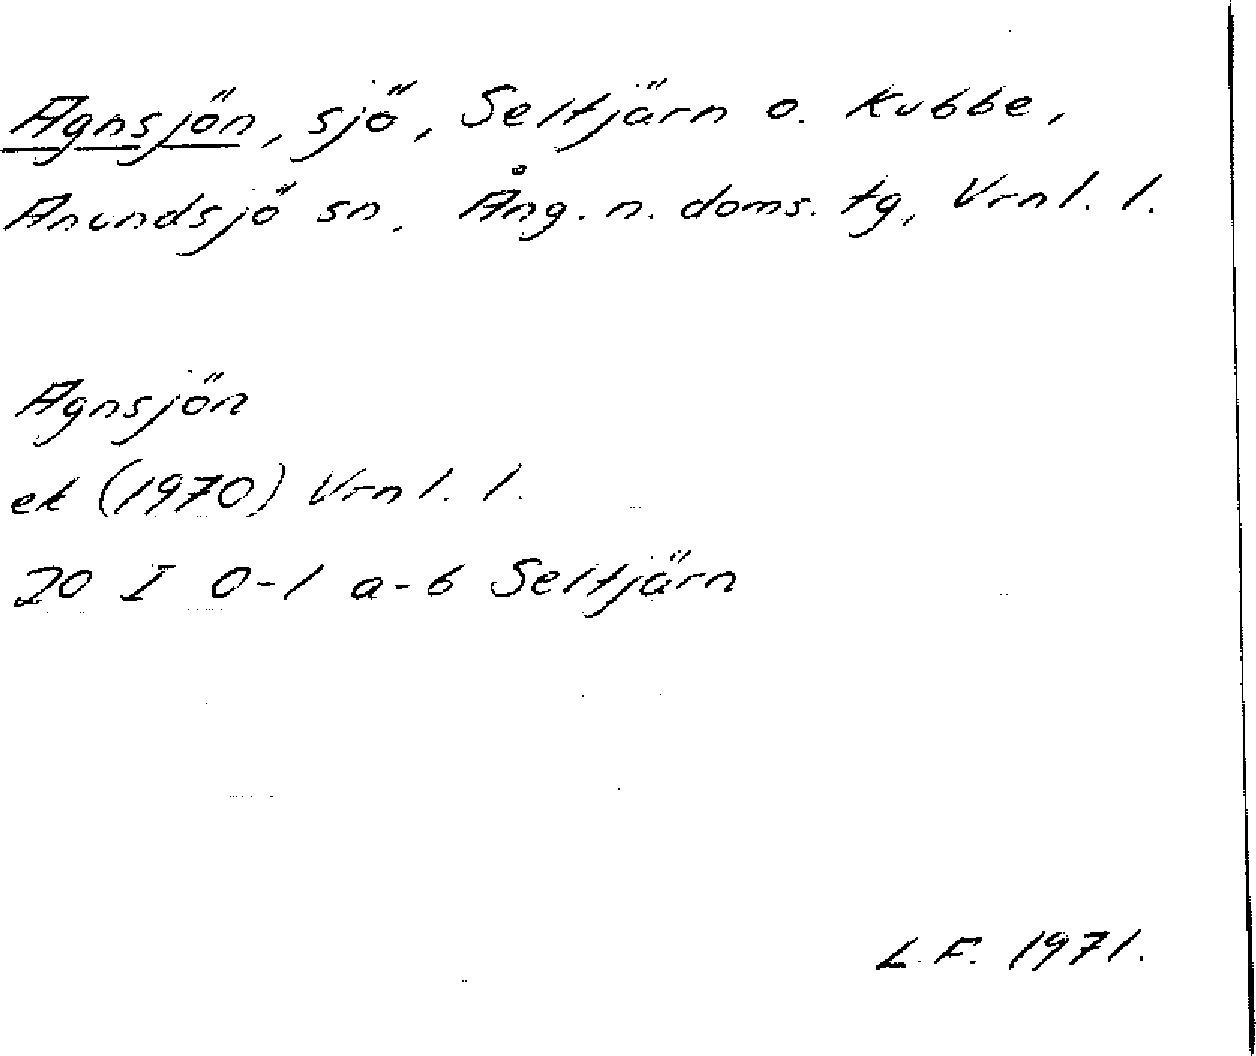 Agnsjön, sjö, Seltjärn o. Kubbe,
Anundsjö sn. Ång. n. doms. tg, Vrnl. l.
Agnsjön
ek (1970) Vrnl. l.
20 I 0-1 a-b Seltjärn
L. F. 1971.